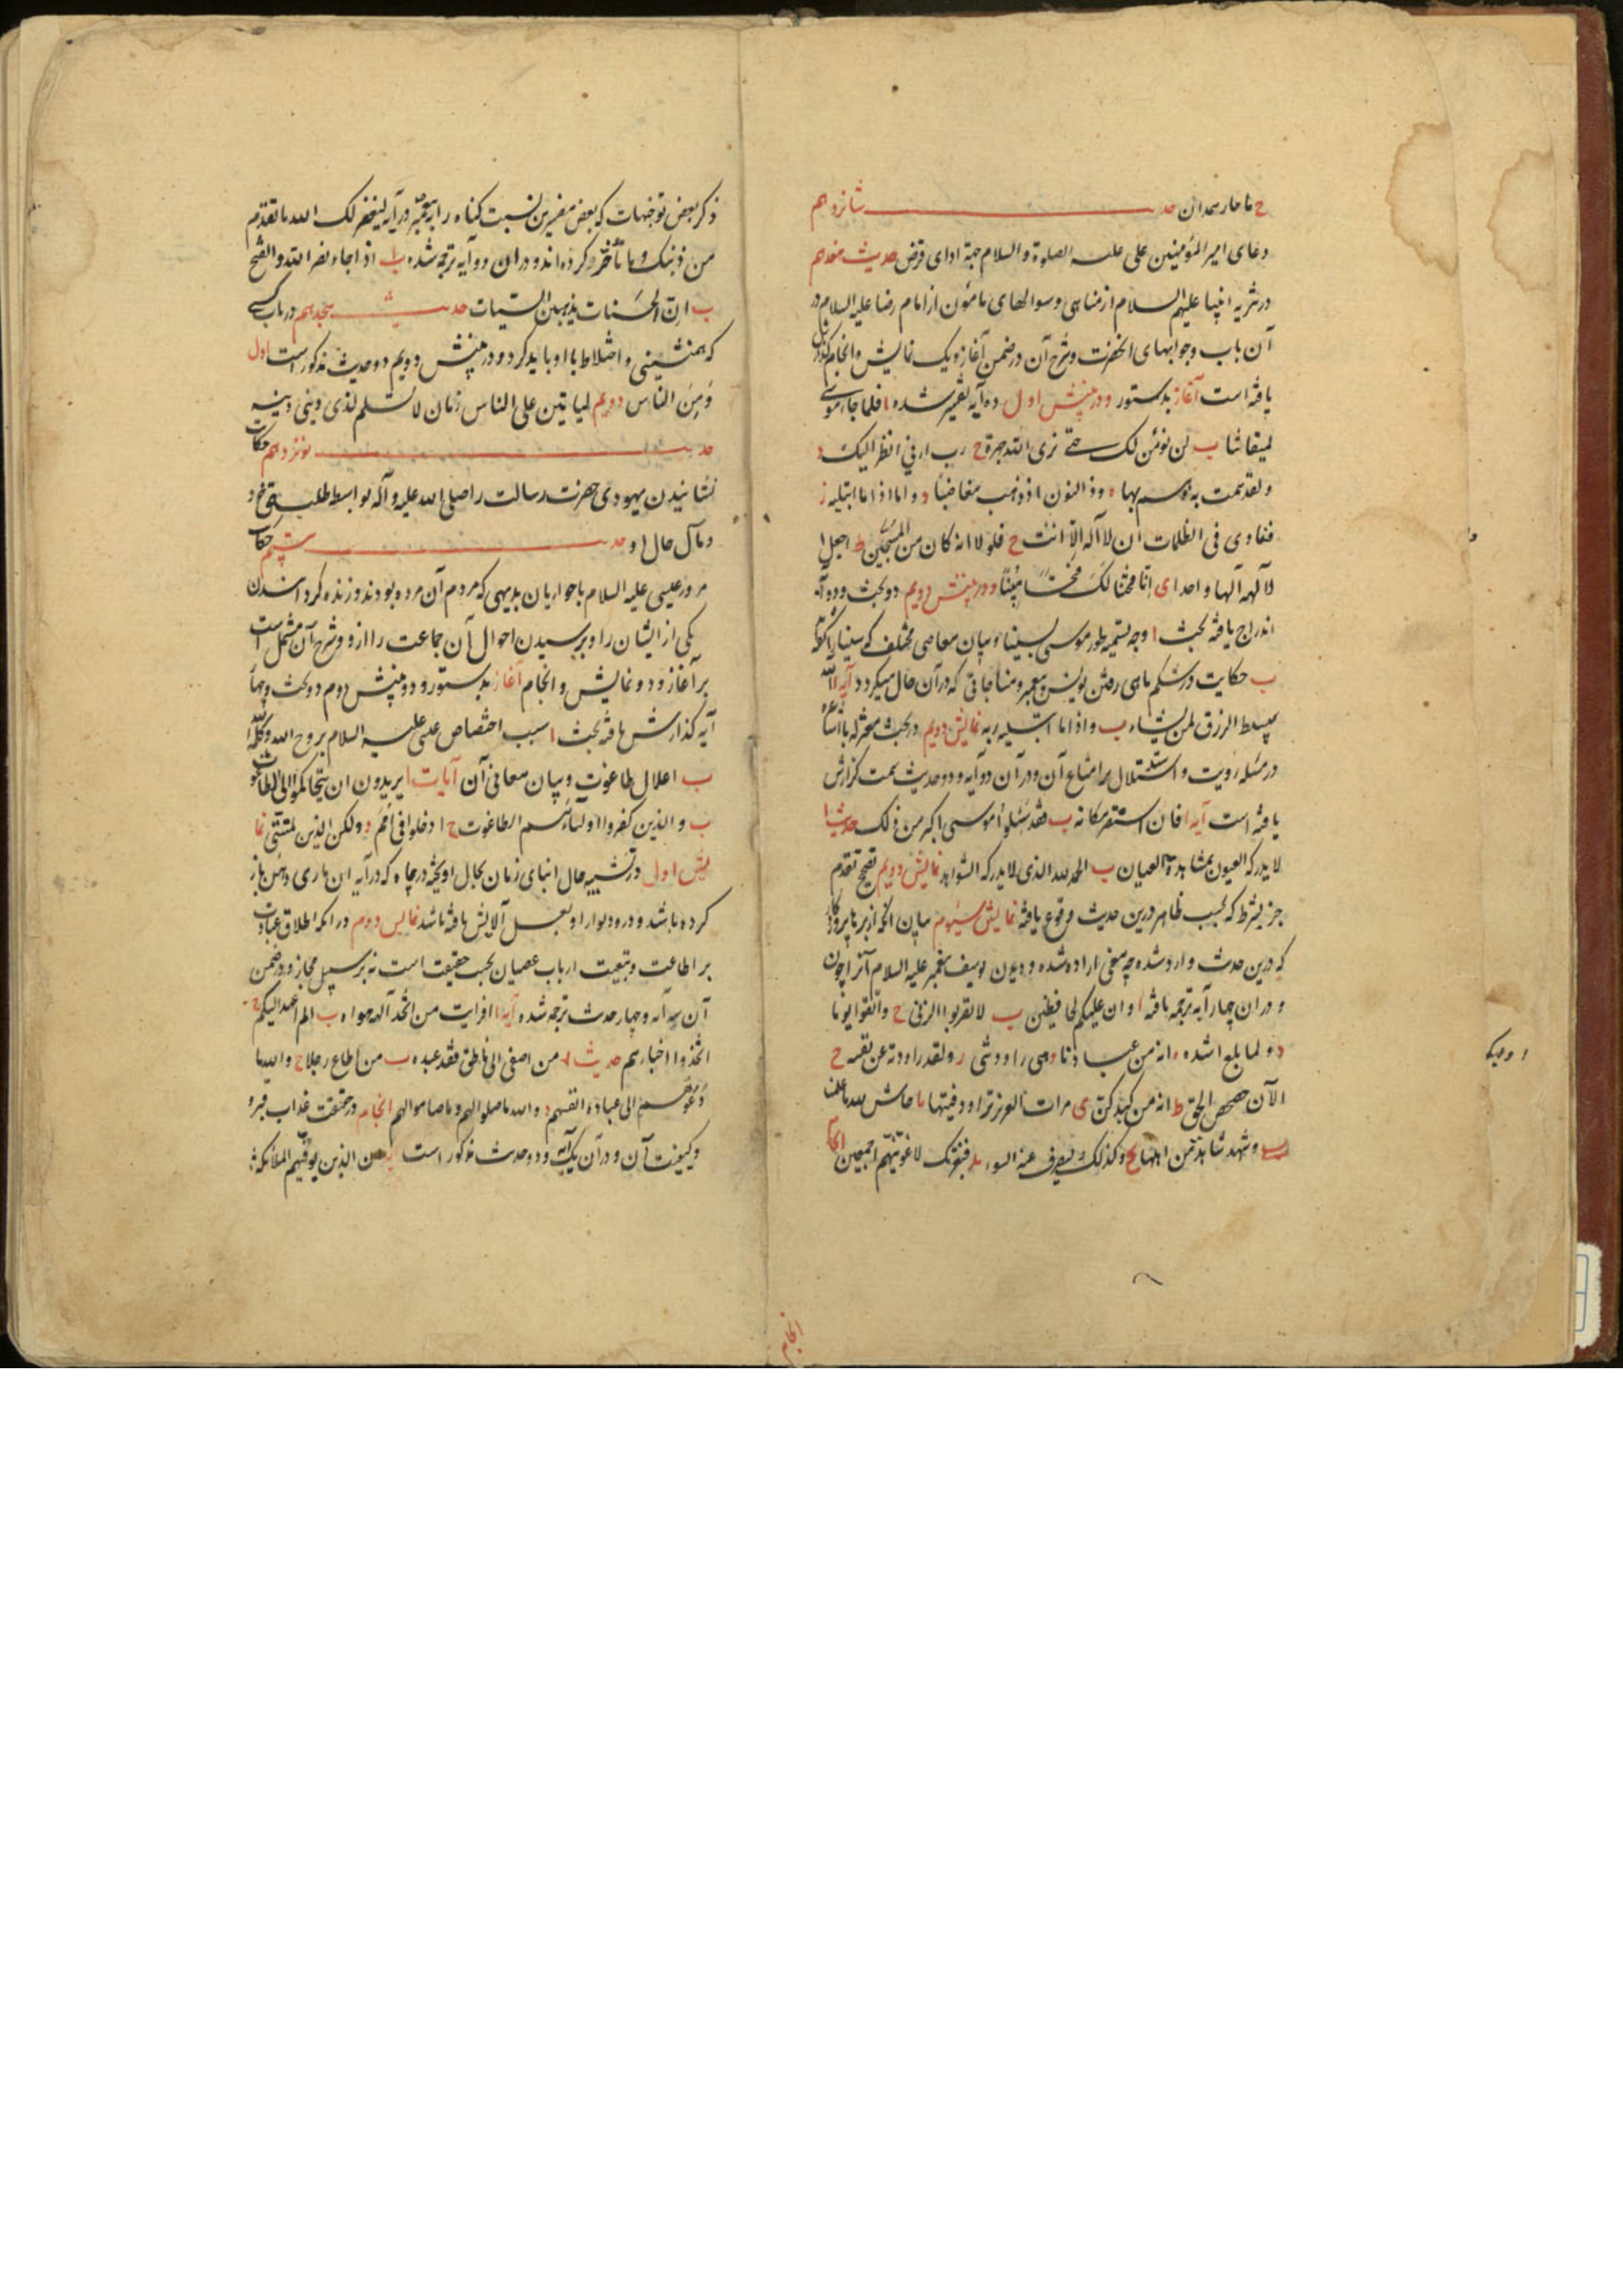 ح یا حار همدان حدیث شانزدهم
دعای امیر المؤمنین علی علیه الصلوة و السلام جهة ادای قرض حدیث هفدهم
در تنزیه انبیا علیهم السلام از مناهی و سوالهای مامون از امام رضا علیه السلام در
آن باب و جوابهای انحضرت و شرح آن در ضمن آغاز و یک نمایش و انجام گذارش
یافته است آغاز بدستور و در بینش اول ده آیه تفسیر شده ا فلما جاء موسی
لمیقاتنا ب لن نؤمن لک حتی نری الله جهرة ج رب ارنی انظر الیک د
و لقد همت به و هم بها ه و ذا النون اذ ذهب مغاضبا و و اما اذا ما ابتلیه ز
فنادی فی الظلمات ان لا آله الا انت ح فلو لا انه کان من المسبحین ط اجعل
الآلهة آلها واحدا ی انا فتحنا لک فتحا مبینا و در بینش دویم دو بحث و دو آیه
اندراج یافته بحث ا وجه تسمیه طور موسی بسینا و بیان معاصی مختلف که سینا را گفته
ب حکایت در شکم ماهی رفتن یونس پیغمبر و مناجاتی که در آن حال میکرد آیه ا الله
یبسط الرزق لمن یشاء ب و اذا ما ابتلیه ربه نمایش دویم در بحث معتزله با اشاعره
در مسئله رویت و استدلال بر امتناع آن و در آن دو آیه و دو حدیث سمت گزارش
یافته است آیه ا فان استقر مکانه ب فقد سئلوا موسی اکبر من ذلک حدیث ا
لا یدرکه العیون بمشاهدة العیان ب الحمد لله الذی لا یدرکه الشواهد نمایش دویم تصحیح تقدم
جزء بشرط که بحسب ظاهر درین حدیث وقوع یافته نمایش سیوم بیان
که درین حدیث وارد شده چه معنی اراده شده و دیدن یوسف پیغمبر علیه السلام آنرا چون
و در ان چهار آیه ترجمه یافته ا و ان علیکم لحافظین ب لا تقربوا الزنی ج و اتقوا یوما
د و لما بلغ اشده ه انه من عبادنا و هی راودتنی ز و لقد راودته عن نفسه ح
الآن حصحص الحق ط انه من کیدکن ی امرات العزیز تراود فتیها یا حاش لله ما علمنا
یب و شهد شاهد من اهلها یج و کذلک لنصرف عنه السوء ید فبعزتک لاغوینهم اجمعین انجام
انجام
ذکر بعض توجیهات که بعض مفسرین نسبت گناه را به پیغمبر در آیه لیغفر لک الله ما تقدم
من ذنبک و ما تأخر کرده اند و در ان دو آیه ترجمه شده ا اذا جاء نصر الله و الفتح
ب ان الحسنات یذهبن السیئات حدیث هیجدهم در باب کسی
که همنشینی و اختلاط با او باید کرد و در بینش دویم دو حدیث مذکور است اول
و من الناس دویم لیاتین علی الناس زمان لا یسلم لذی دینی دینه
حدیث نوزدهم حکایت
نشانیدن یهودی حضرت رسالت را صلی الله علیه و آله بواسطه طلب حق خود
و مآل حال او حدیث بیستم حکایت
مرور عیسی علیه السلام با حواریان بدیهی که مردم آن مرده بودند و زنده کرد اندن
یکی از ایشان را و پرسیدن احوال آن جماعت را از و و شرح آن مشتمل است
بر آغاز و دو نمایش و انجام آغاز بدستور و در بینش دوم دو بحث و چهار
آیه گذارش یافته بحث ا سبب اختصاص عیسی علیه السلام بروح الله و کلمة الله
ب اعلال طاغوت و بیان معانی آن آیات ا یریدون ان یتحاکموا الی الطاغوت
ب و الذین کفروا اولیاءهم الطاغوت ج ادخلوا فی امم د و لکن الذین نما
یش اول در تشبیه حال ابنای زمان بحال اویخته در چاه که در آنه ان ماری دهن باز
کرده باشد و در و دیوار او بعسل آلایش یافته باشد نمایش دوم در انکه اطلاق عبادت
بر اطاعت و تبعیت ارباب عصیان بحسب حقیقت است نه بر سبیل مجاز و در ضمن
آن سه آیه و چهار حدیث ترجمه شده آیه ا افرایت من اتخذ آلهه هواه ب الم اعهد الیکم ج
اتخذوا احبارهم حدیث ا من اصغی الی ناطق فقد عبده ب من اطاع رجلا ج و الله ما
دعوهم الی عبادة انفسهم د و الله ما صلوا لهم و ما صاموا لهم انجام در حقیقت عذاب قبر و
کیفیت آن و در آن یک آیه و دو حدیث مذکور است الذین یوفیهم الملائکة